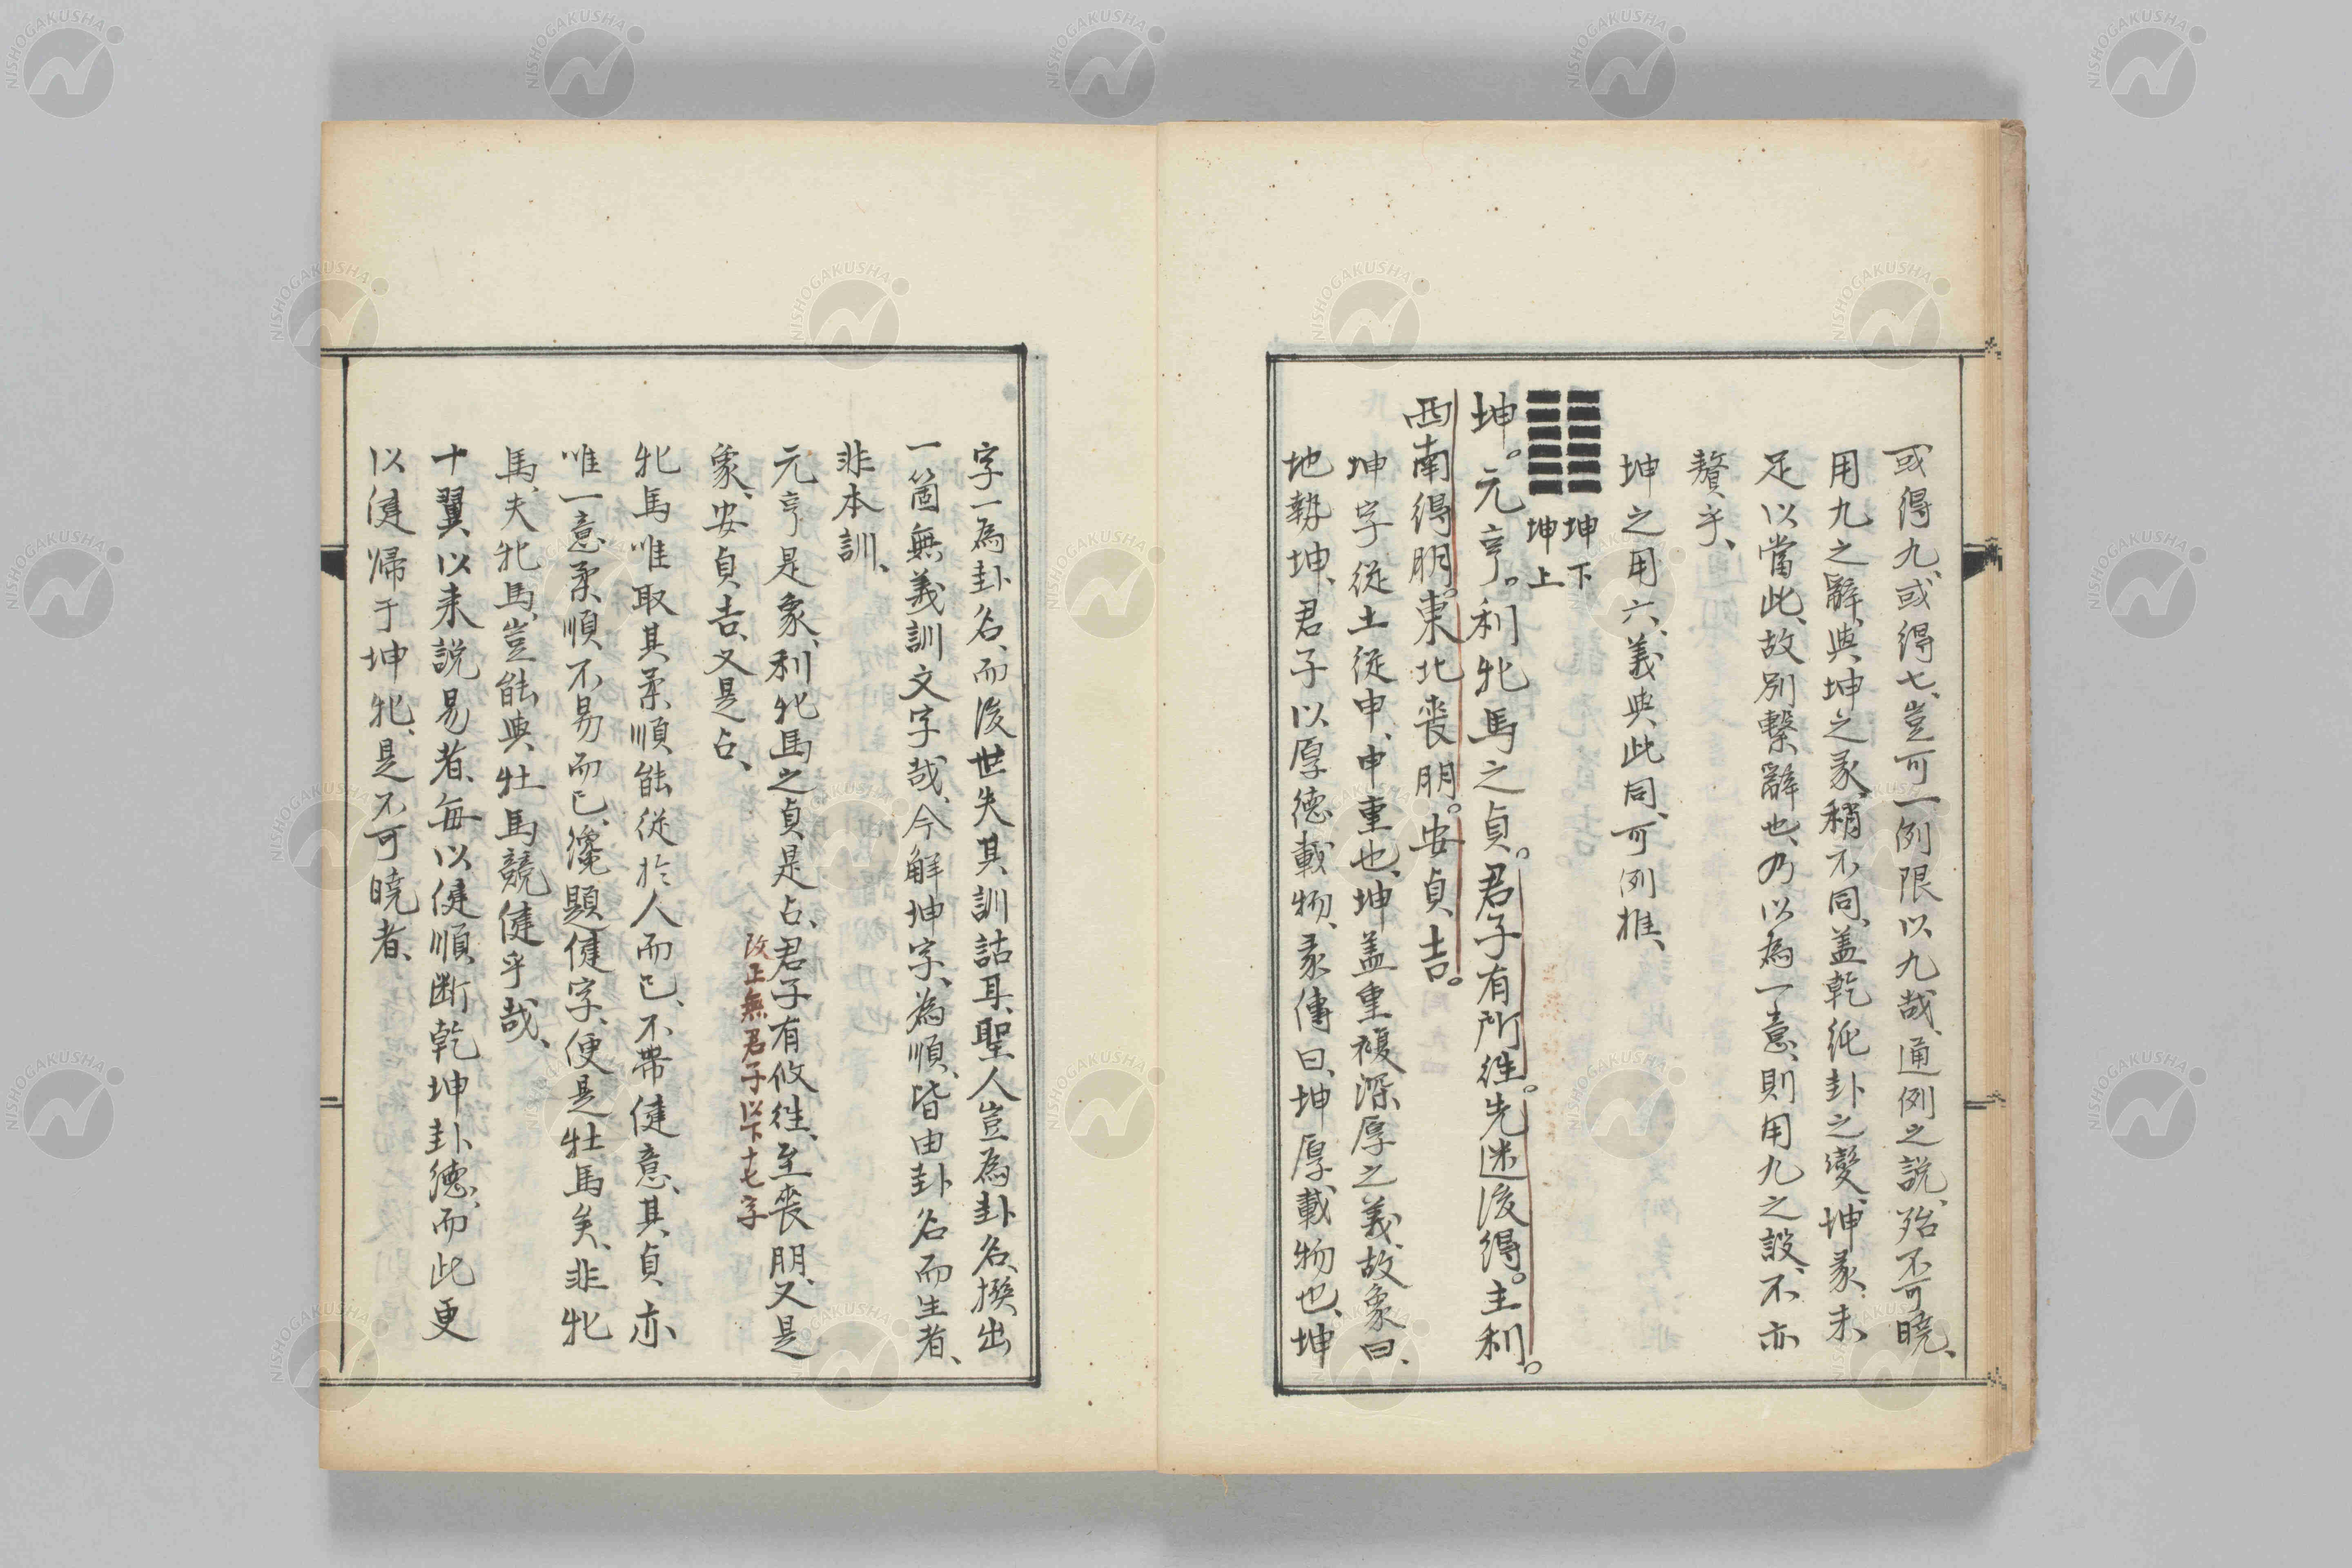 或得九、或得七、豈可一例限以九哉、通例之説、殆不可曉、
用九之辭、與坤之彖、稍不同、盖乾純卦之變、坤彖、未
足以當此、故別繫辭也、乃以為一意、則用九之設、不亦
贅乎、
坤之用六、義與此同、可例推、
坤下
坤上
坤。元亨。利牝馬之貞。君子有所往。先迷後得。主利。
西南得朋。東北喪朋。安貞吉。
坤字従土従申、申重也、坤盖重複深厚之義、故象曰、
地勢坤、君子以厚徳載物、彖傳曰、坤厚載物也、坤
字一為卦名、而後世失其訓詁耳、聖人豈為卦名、撰出
一箇無義訓文字哉、今解坤字、為順、皆由卦名而生者、
非本訓、
元亨是象、利牝馬之貞是占、君子有攸往、至喪朋、又是
改正無君子以下十七字
象、安貞吉、又是占、
牝馬唯取其柔順能従於人而已、不帯健意、其貞亦
唯一意柔順不易而已、纔題健字、便是牡馬矣、非牝
馬、夫牝馬、豈能與牡馬競健乎哉、
十翼以来説易者、毎以健順断乾坤卦徳、而此更
以健歸于坤牝、是不可曉者、
NISHOGAKUSHA